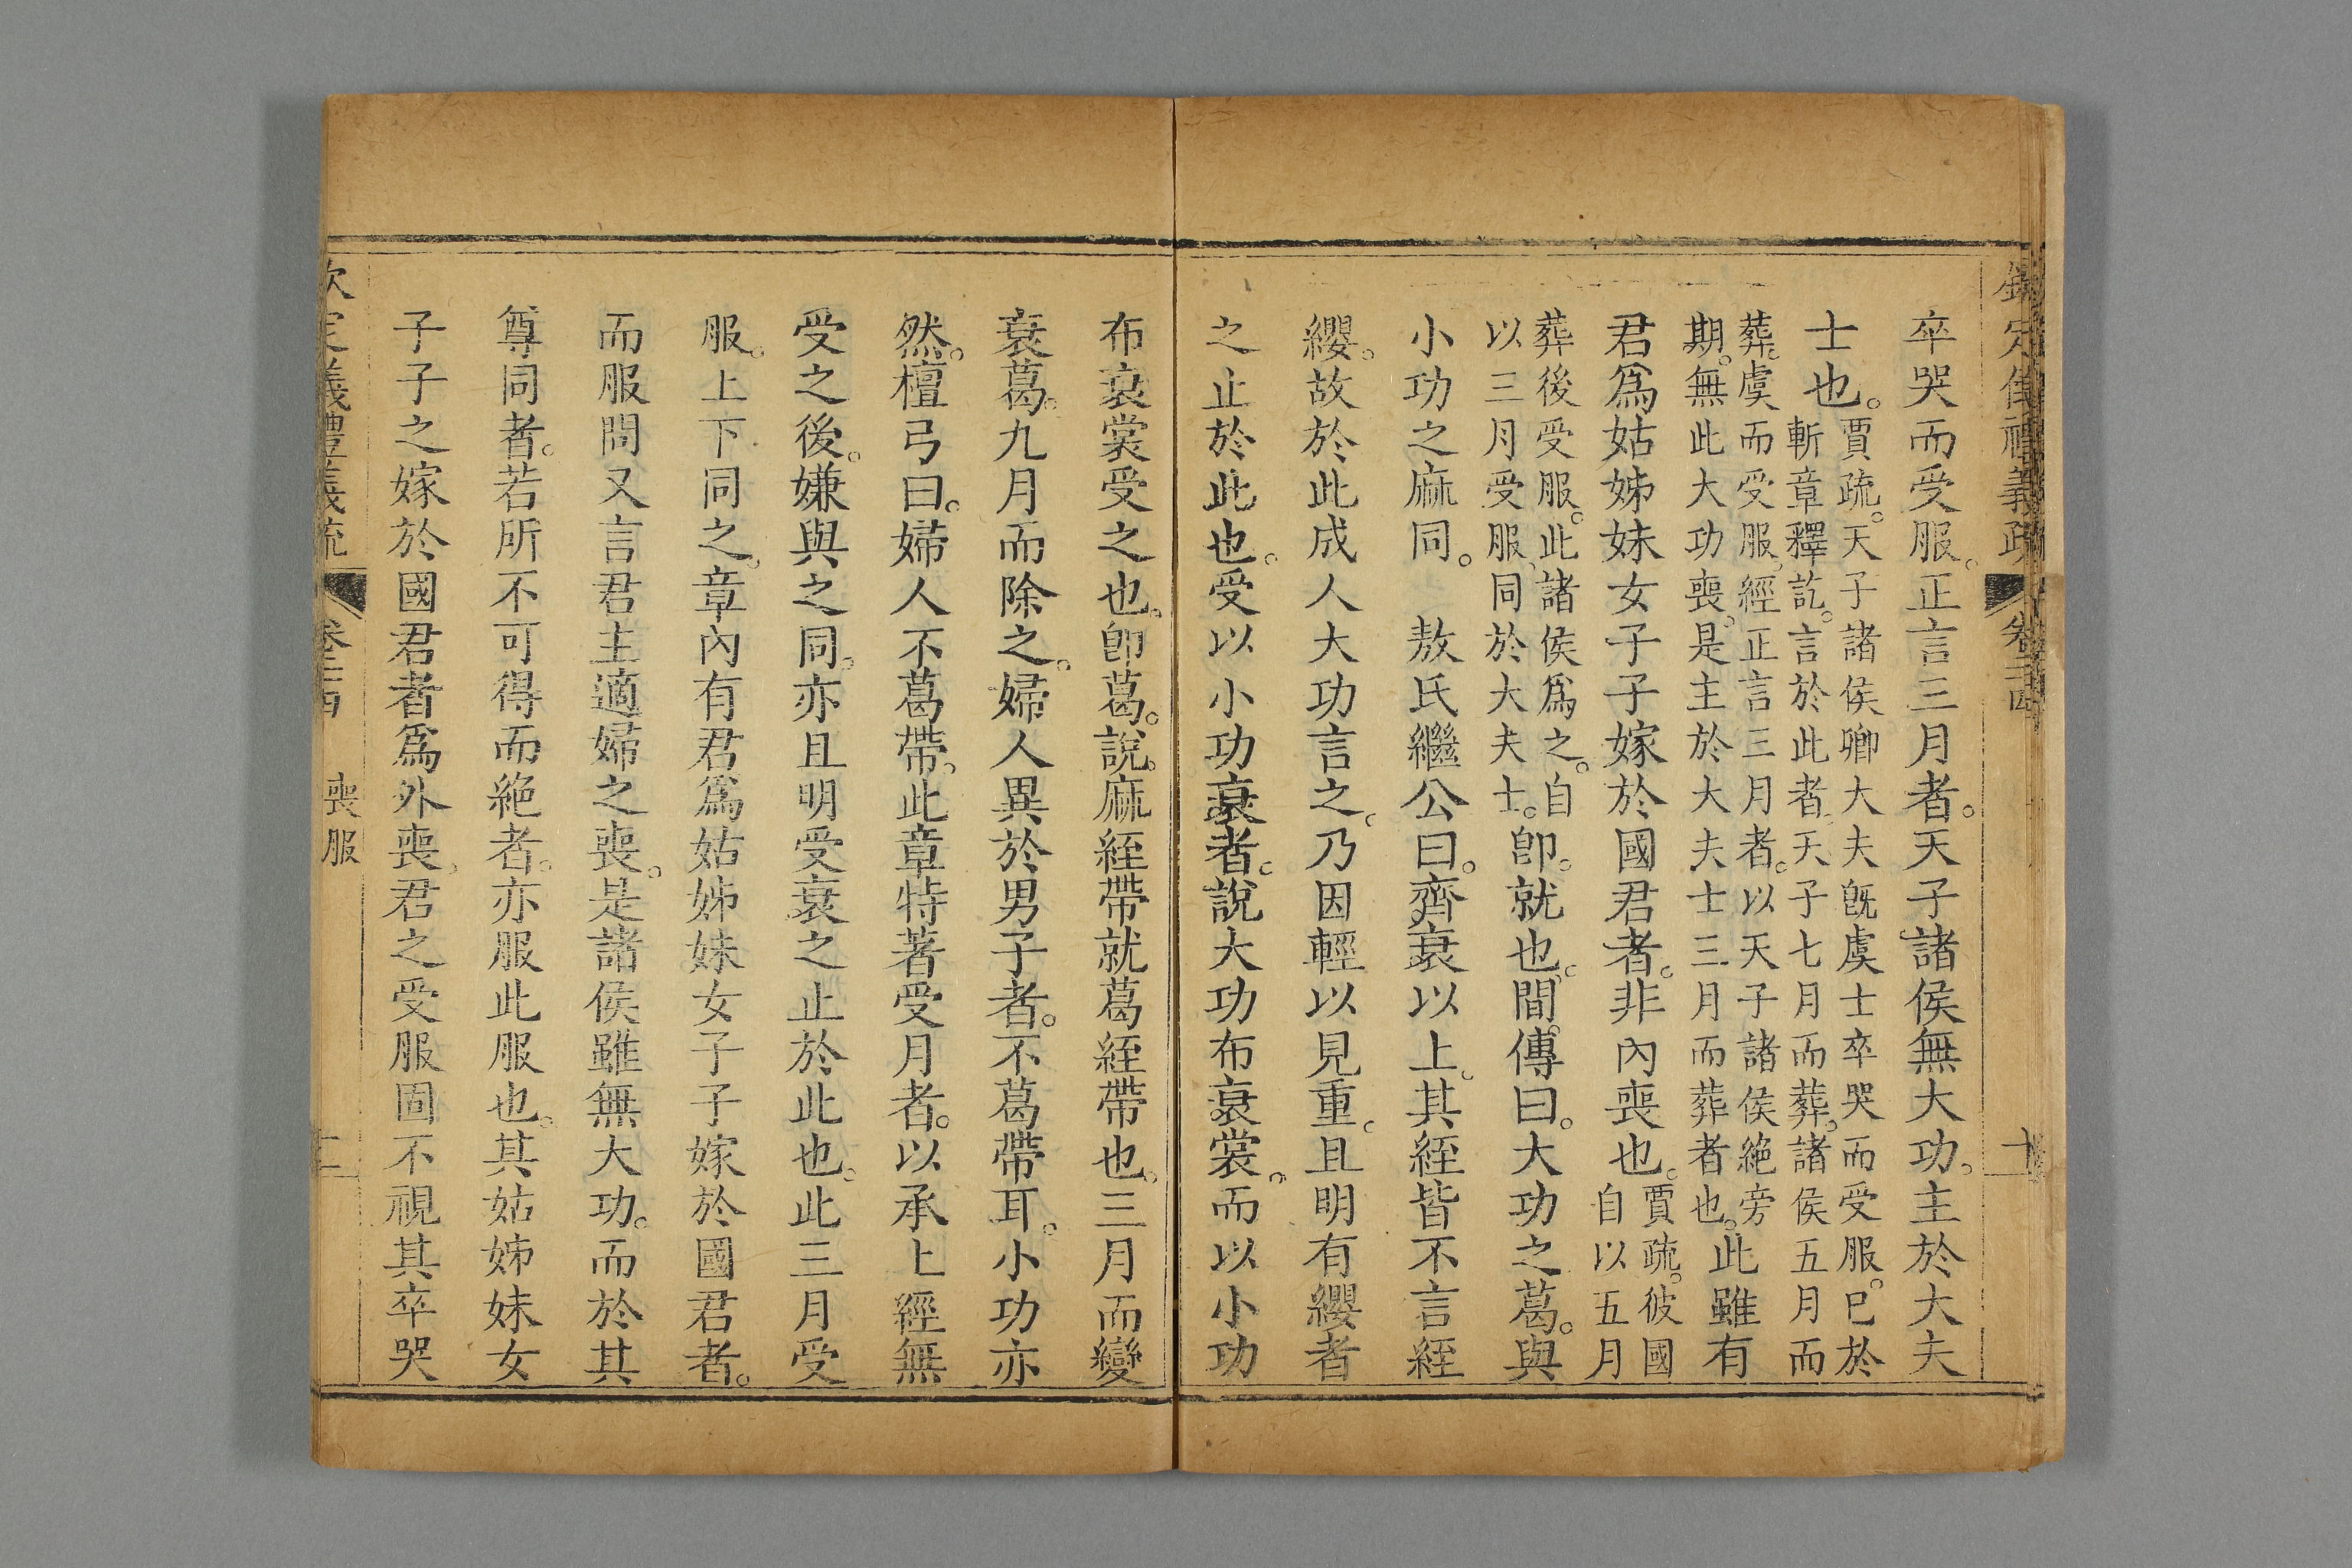 欽定儀禮義疏 卷二十四 十
卒哭而受服。正言三月者。天子諸侯無大功。主於大夫
士也。賈疏。天子諸侯卿大夫旣虞士卒哭而受服。已於
斬章釋訖。言於此者。天子七月而葬。諸侯五月而
葬。虞而受服。經正言三月者。以天子諸侯絶旁
期。無此大功喪。是主於大夫士三月而葬者也。此雖有
君爲姑姊妹女子子嫁於國君者。非內喪也。賈疏。彼國
自以五月
葬後受服。此諸侯爲之。自
以三月受服。同於大夫士。卽。就也。間傳曰。大功之葛。與
小功之麻同。 敖氏繼公曰。齊衰以上。其絰皆不言絰
纓。故於此成人大功言之。乃因輕以見重。且明有纓者
之止於此也。受以小功衰者。說大功布衰裳。而以小功
布衰裳受之也。卽葛。說麻絰帶就葛絰帶也。三月而變
衰葛。九月而除之。婦人異於男子者。不葛帶耳。小功亦
然。檀弓曰。婦人不葛帶。此章特著受月者。以承上經無
受之後。嫌與之同。亦且明受衰之止於此也。此三月受
服。上下同之。章內有君爲姑姊妹女子子嫁於國君者。
而服問又言君主適婦之喪。是諸侯雖無大功。而於其
尊同者。若所不可得而絶者。亦服此服也。其姑姊妹女
子子之嫁於國君者爲外喪。君之受服固不視其卒哭
欽定儀禮義疏 卷二十四 喪服